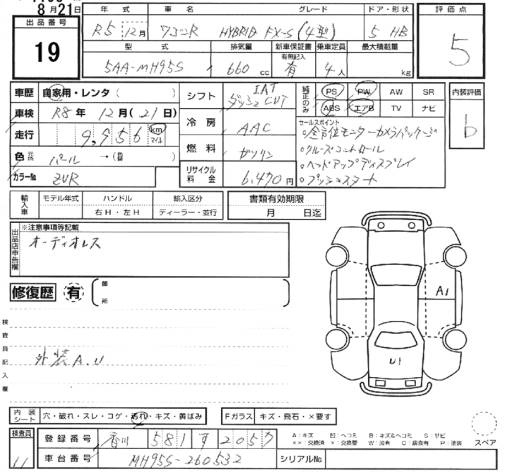 8月21日
出品番号
19
年式 車名 グレード ドア・形状
R5年12月 ワゴンR HYBRID FX-S (4型) 5 HB
型式 排気量 新車保証書 乗車定員 最大積載量
有無記入
5AA-MH95S 660cc 有 4人 kg
評価点
5
車歴 自家用・レンタ( )
車検 R8年12月(21日)
走行 9,956 km マイル
色 パール →( )
カラーNo ZVR
シフト IAT ダッシュ CVT
冷房 AAC
燃料 ガソリン
リサイクル料金 6,490円
純正のみ
PS PW AW SR
ABS エアB TV ナビ
セールスポイント
。全方位モニターカメラパッケージ
。クルーズコントロール
。ヘッドアップディスプレイ
。プッシュスタート
内装評価
b
輸入車
モデル年式 ハンドル 輸入区分
右H・左H ディーラー・並行
書類有効期限
月 日迄
出品店申告欄
※注意事項等記載
オーディオレス
修復歴 有
箇所
検査員記入欄
外装A.U
A1
U1
内装シート 穴・破れ・スレ・コゲ・汚れ・キズ・黄ばみ
Fガラス キズ・飛石・×要す
検査員
11
登録番号 香川 581 す 2057
車台番号 MH95S-260532
シリアルNo.
A:キズ U:ヘコミ B:キズ&ヘコミ S:サビ
××:交換済 ×:交換要 W:波有 C:腐食有 P:塗装
スペア